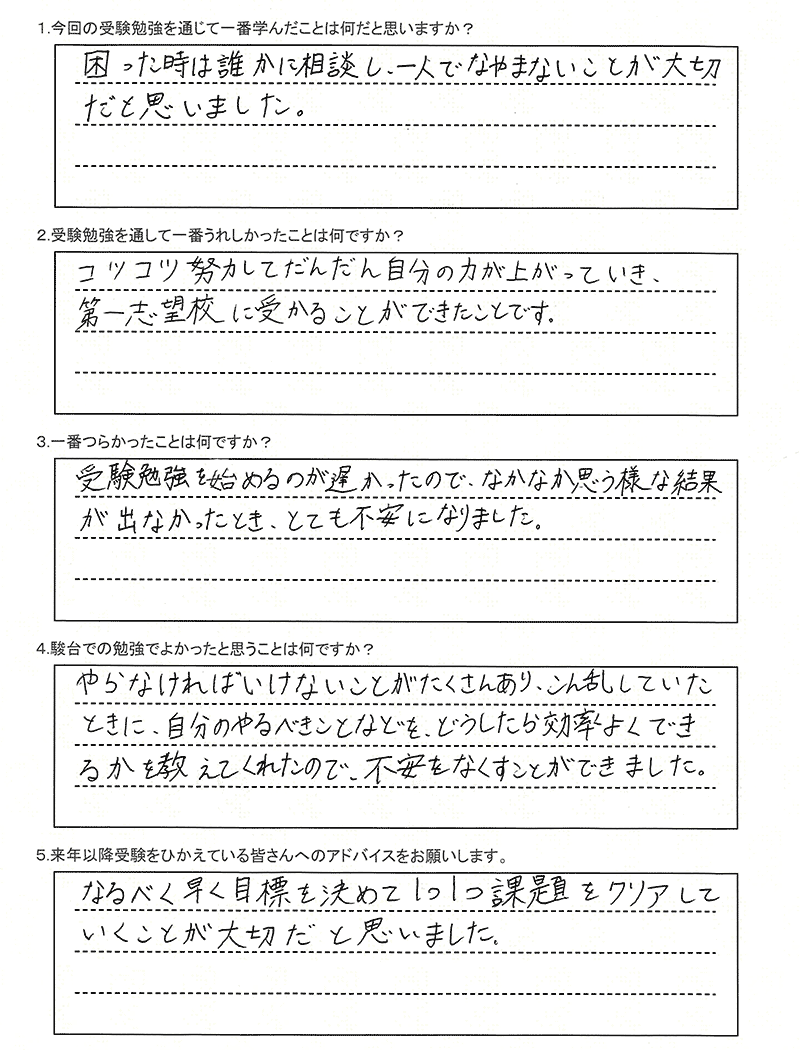 1.今回の受験勉強を通じて一番学んだことは何だと思いますか？
困った時は誰かに相談し、一人でなやまないことが大切
だと思いました。
2.受験勉強を通して一番うれしかったことは何ですか？
コツコツ努力してだんだん自分の力が上がっていき、
第一志望校に受かることができたことです。
3.一番つらかったことは何ですか？
受験勉強を始めるのが遅かったので、なかなか思う様な結果
が出なかったとき、とても不安になりました。
4.駿台での勉強でよかったと思うことは何ですか？
やらなければいけないことがたくさんあり、こん乱していた
ときに、自分のやるべきことなどを、どうしたら効率よくでき
るかを教えてくれたので、不安をなくすことができました。
5.来年以降受験をひかえている皆さんへのアドバイスをお願いします。
なるべく早く目標を決めて1つ1つ課題をクリアして
いくことが大切だと思いました。